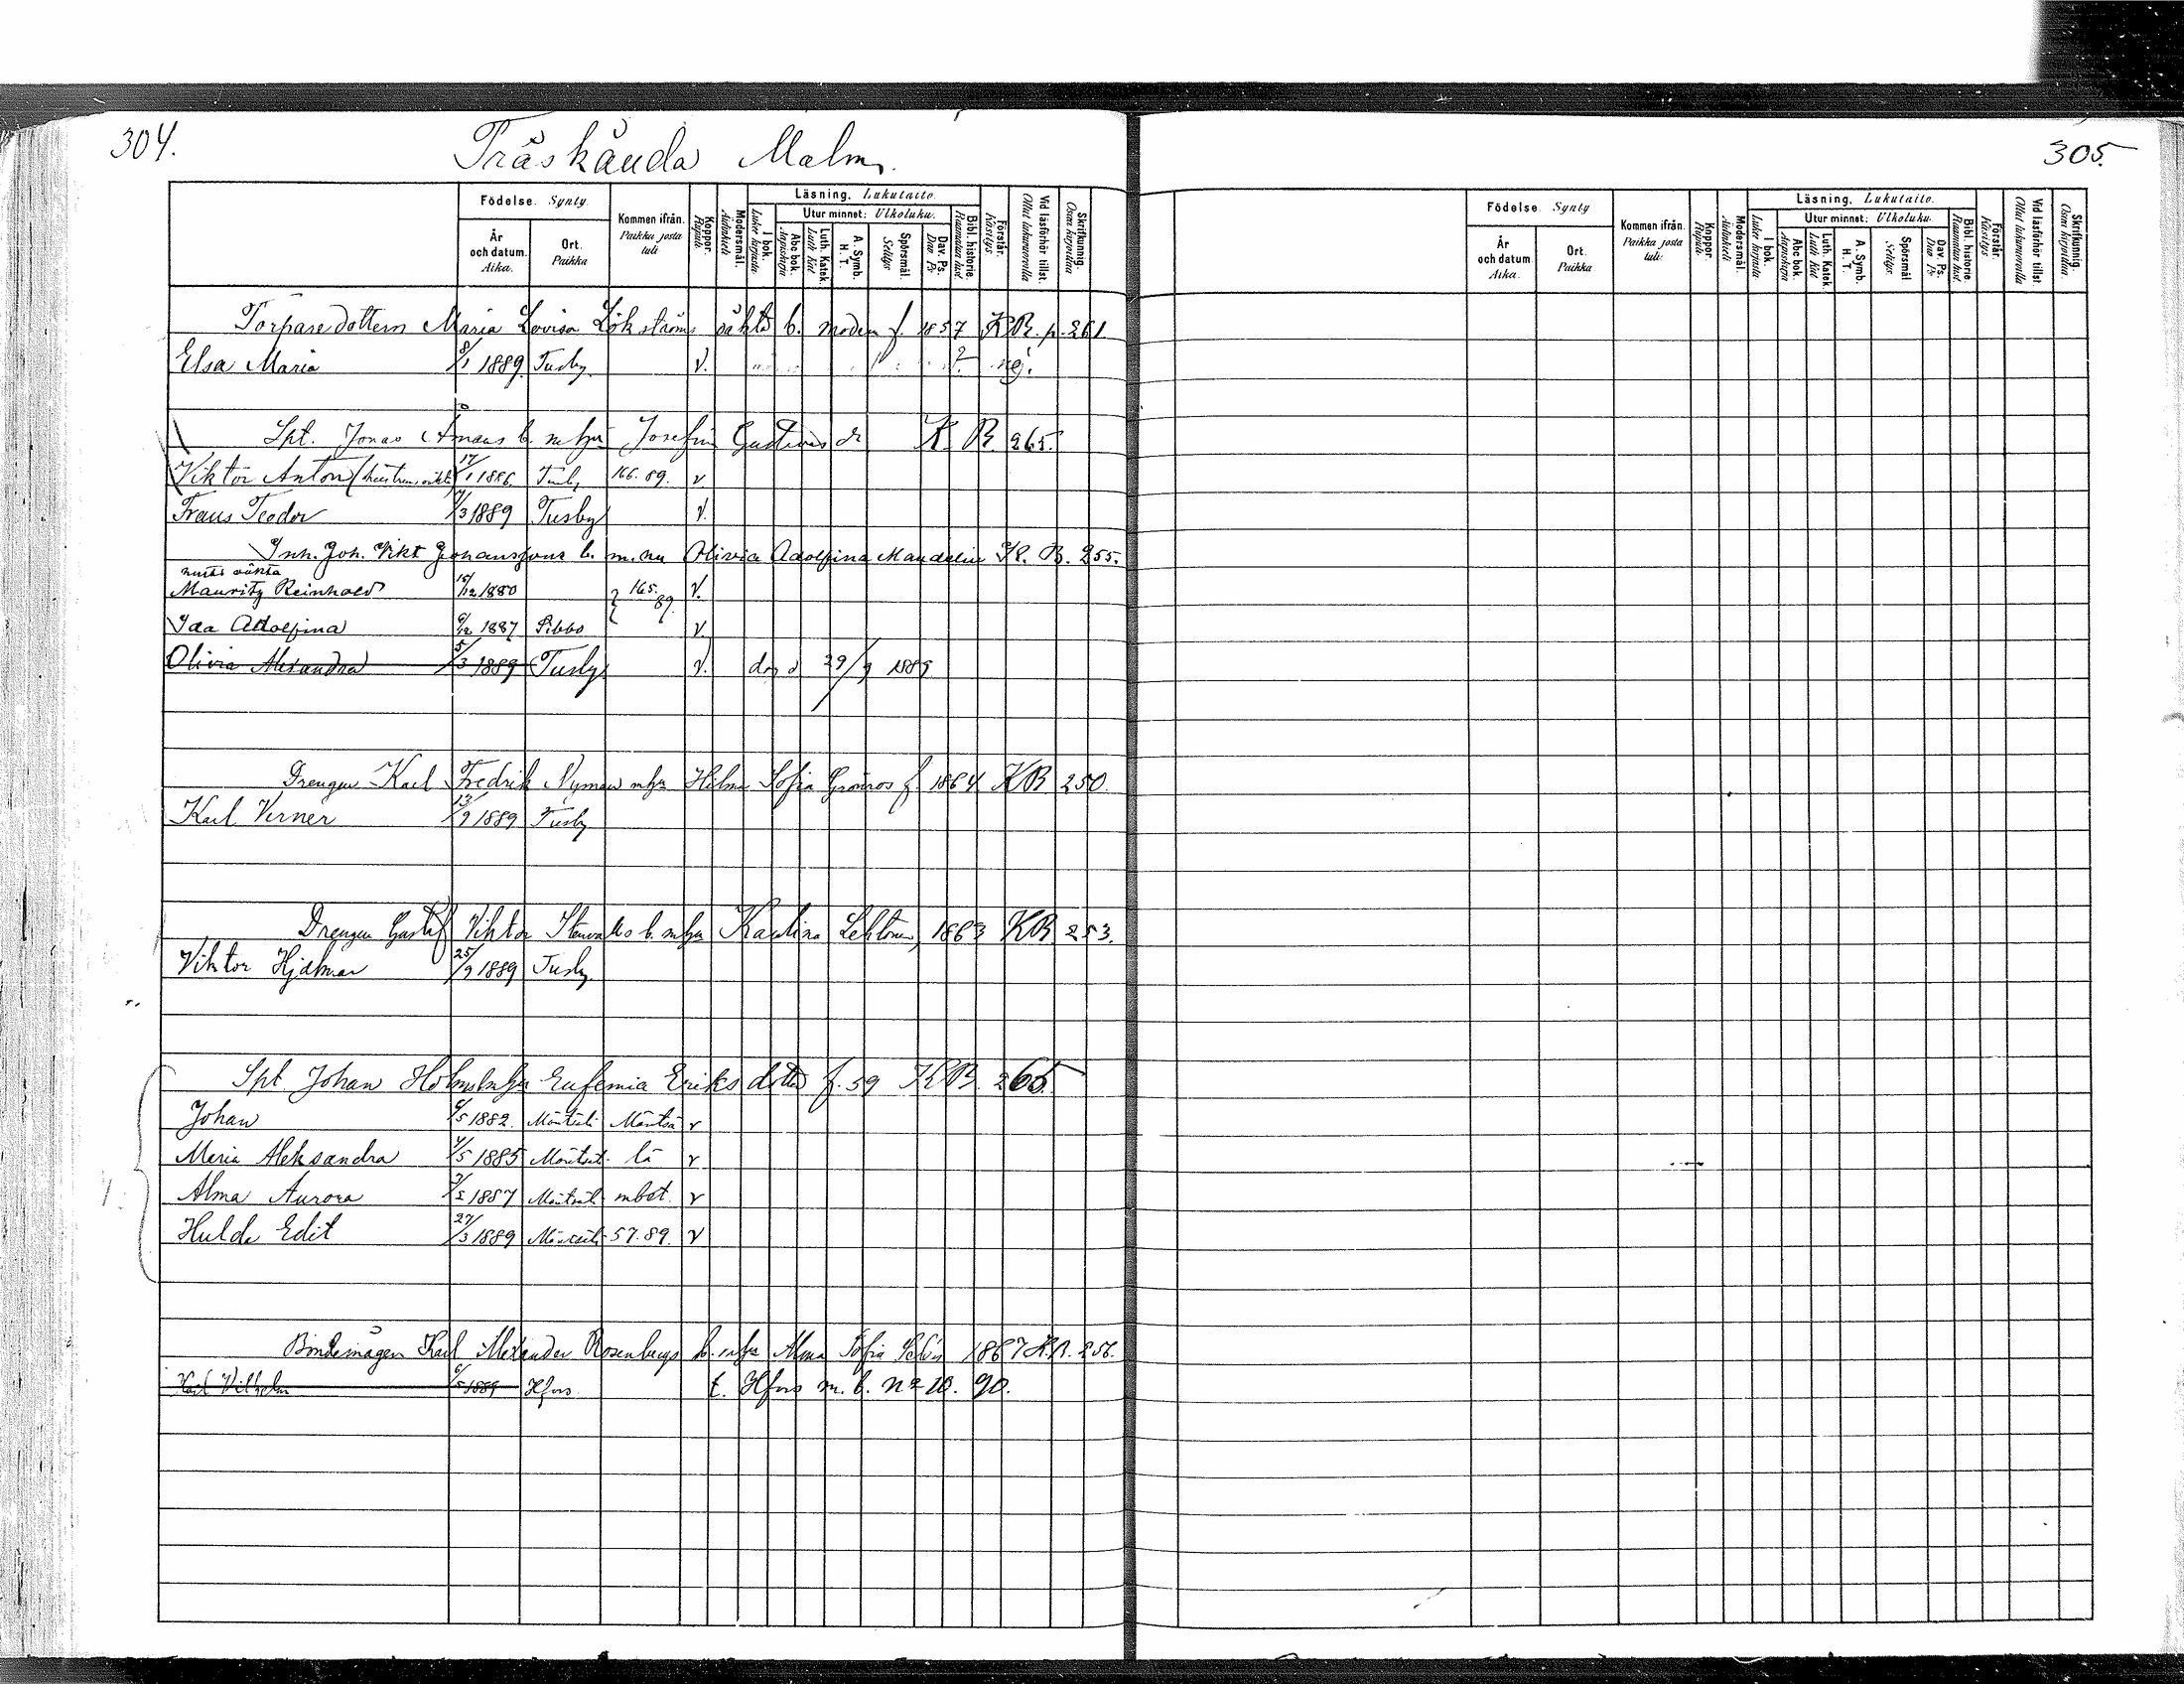 304.
Träskända Malm.
Födelse. Synty.
År och datum. Aika.
Ort. Paikka
Kommen ifrån. Paikka josta tuli
Koppor. Rupuli.
Modersmål. Äidinkieli
Läsning. Lukutaito.
I bok. Lukee kirjasta.
Utur minnet: Ulkoluku.
Abc bok. Aapiskirja
Luth. Katek. Luth Kat
A. Symb. H. T.
Spörsmål. Selitys
Dav. Ps. Dav. Ps
Bibl. historie. Raamatun hist.
Förstår. Käsitys.
Vid läsförhör tillst. Ollut lukuvuorolla
Skrifkunnig. Osaa kirjoittaa
Torparedottern Maria Lovisa Lökströms oäkta b. modern f. 1857 KB. p. 261
Elsa Maria 8/1 1889. Tusby. v. ? nej.
Spt. Jonas Åmans b. m hu Josefina Gustava dr K. B. 265.
Viktor Anton 17/1 1886. Tusby 166. 89. v.
Frans Teodor 7/3 1889 Tusby v.
Inh. Joh. Vikt Johanssons b. m. hu Olivia Adolfina Mandelin K. B. 255.
hustr. oäkta
Mauritz Reinhold 15/12 1880 165. 89. v.
Ida Adolfina 9/12 1887 Sibbo v.
Olivia Alexandra 5/3 1889 Tusby v. dog d 29/9 1889
Drengen Karl Fredrik Nyman m hu Hilma Sofia Grönros f. 1864 KB 250.
Karl Verner 13/9 1889 Tusby
Drengen Gustaf Viktor Stenvalls b. m hu Karolina Lehtonen, 1863 KB. 253.
Viktor Hjalmar 25/9 1889 Tusby
Spt Johan Holms b m hu Eufemia Eriks dotter f. 59 KB. 265.
Johan 6/5 1882. Mäntsäl. Mäntsä v
Maria Aleksandra 4/5 1885 Mäntsäl. lä v
Alma Aurora 3/2 1887 Mäntsäl. m bet. v
Hulda Edit 27/3 1889 Mäntsäl. 57. 89. v
Bondemågen Karl Alexander Rosenbergs b. m hu Alma Sofia 1867 K.B. 256.
Karl Vilhelm 6/5 1889 Hfors. t. Hfors m. b. No 10. 90.
305.
Födelse. Synty
År och datum. Aika.
Ort. Paikka
Kommen ifrån. Paikka josta tuli:
Koppor. Rupuli
Modersmål. Äidinkieli
Läsning. Lukutaito.
I bok. Lukee kirjasta.
Utur minnet: Ulkoluku.
Abc bok. Aapiskirja
Luth. Katek. Luth Kat
A. Symb. H. T.
Spörsmål Selitys.
Dav. Ps. Dav. Ps
Bibl. historie. Raamatun hist.
Förstår. Käsitys.
Vid läsförhör tillst. Ollut lukuvuorolla
Skrifkunnig. Osaa kirjoittaa.